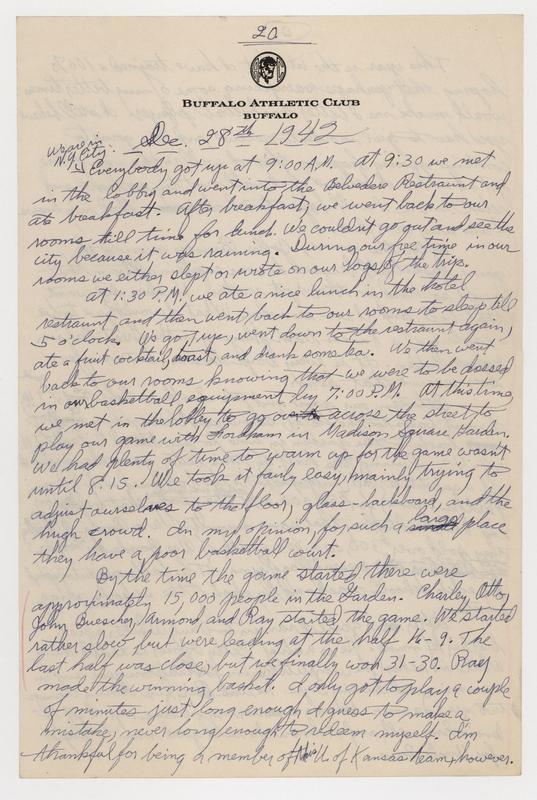 20
BUFFALO ATHLETIC CLUB
BUFFALO
Dec. 28th 1942
We are in
N.Y. City.
Everybody got up at 9:00 A.M. at 9:30 we met
in the lobby and went into the Belvedere Restraunt and
ate breakfast. After breakfast, we went back to our
rooms till time for lunch. We couldn't go out and see the
city because it was raining. During our free time in our
rooms we either slept or wrote on our logs of the trip.
at 1:30 P.M. we ate a nice lunch in the hotel
restraunt, and then went back to our rooms to sleep till
5 o'clock. We got up, went down to the restraunt again,
ate a fruit cocktail, toast, and drank some tea. We then went
back to our rooms knowing that we were to be dressed
in our basketball equipment by 7:00 P.M. At this time,
we met in the lobby to go across the street to
play our game with Fordham in Madison Square Garden.
We had plenty of time to warm up for the game wasn't
until 8:15. We took it fairly easy, mainly trying to
adjust ourselves to the floor, glass-backboard, and the
high crowd. In my opinion, for such a large place
they have a poor basketball court.
By the time the game started there were
approximately 15,000 people in the Garden. Charley, Otto,
John Buescher, Armond, and Ray started the game. We started
rather slow but were leading at the half 16-9. The
last half was close, but we finally won 31-30. Ray
made the winning basket. I only got to play a couple
of minutes - just long enough I guess to make a
mistake, never long enough to redeem myself. I'm
thankful for being a member of this U. of Kansas team, however.